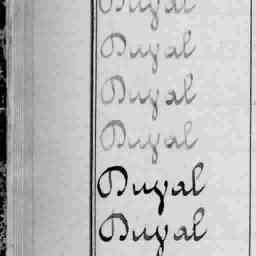 Duyal
Duyal
Duyal
Duyal
Duyal
Duyal